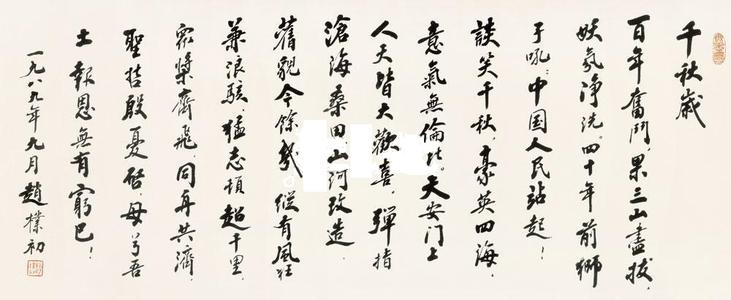 千秋歲
百年奮鬥，果三山盡拔，
妖氛淨洗。四十年前獅
子吼：中国人民站起！
談笑千秋，豪英四海，
意氣無倫比。天安门上
人天皆大歡喜。彈指
滄海桑田，山河改造，
舊觀今餘幾。縱有風狂
兼浪駭，猛志頓超千里。
眾槳齊飛，同舟共濟，
聖哲殷憂啓。母兮吾
土，報恩無有窮已！
一九八九年九月趙樸初